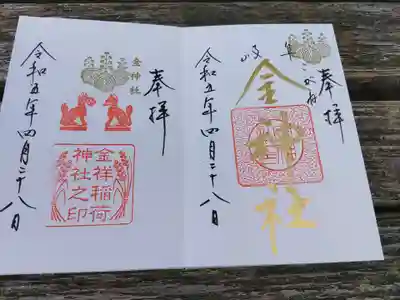 奉拝
岐阜 こがね
金神社
令和五年四月二十八日
奉拝
金神社
金祥稲荷
神社之印
令和五年四月二十八日